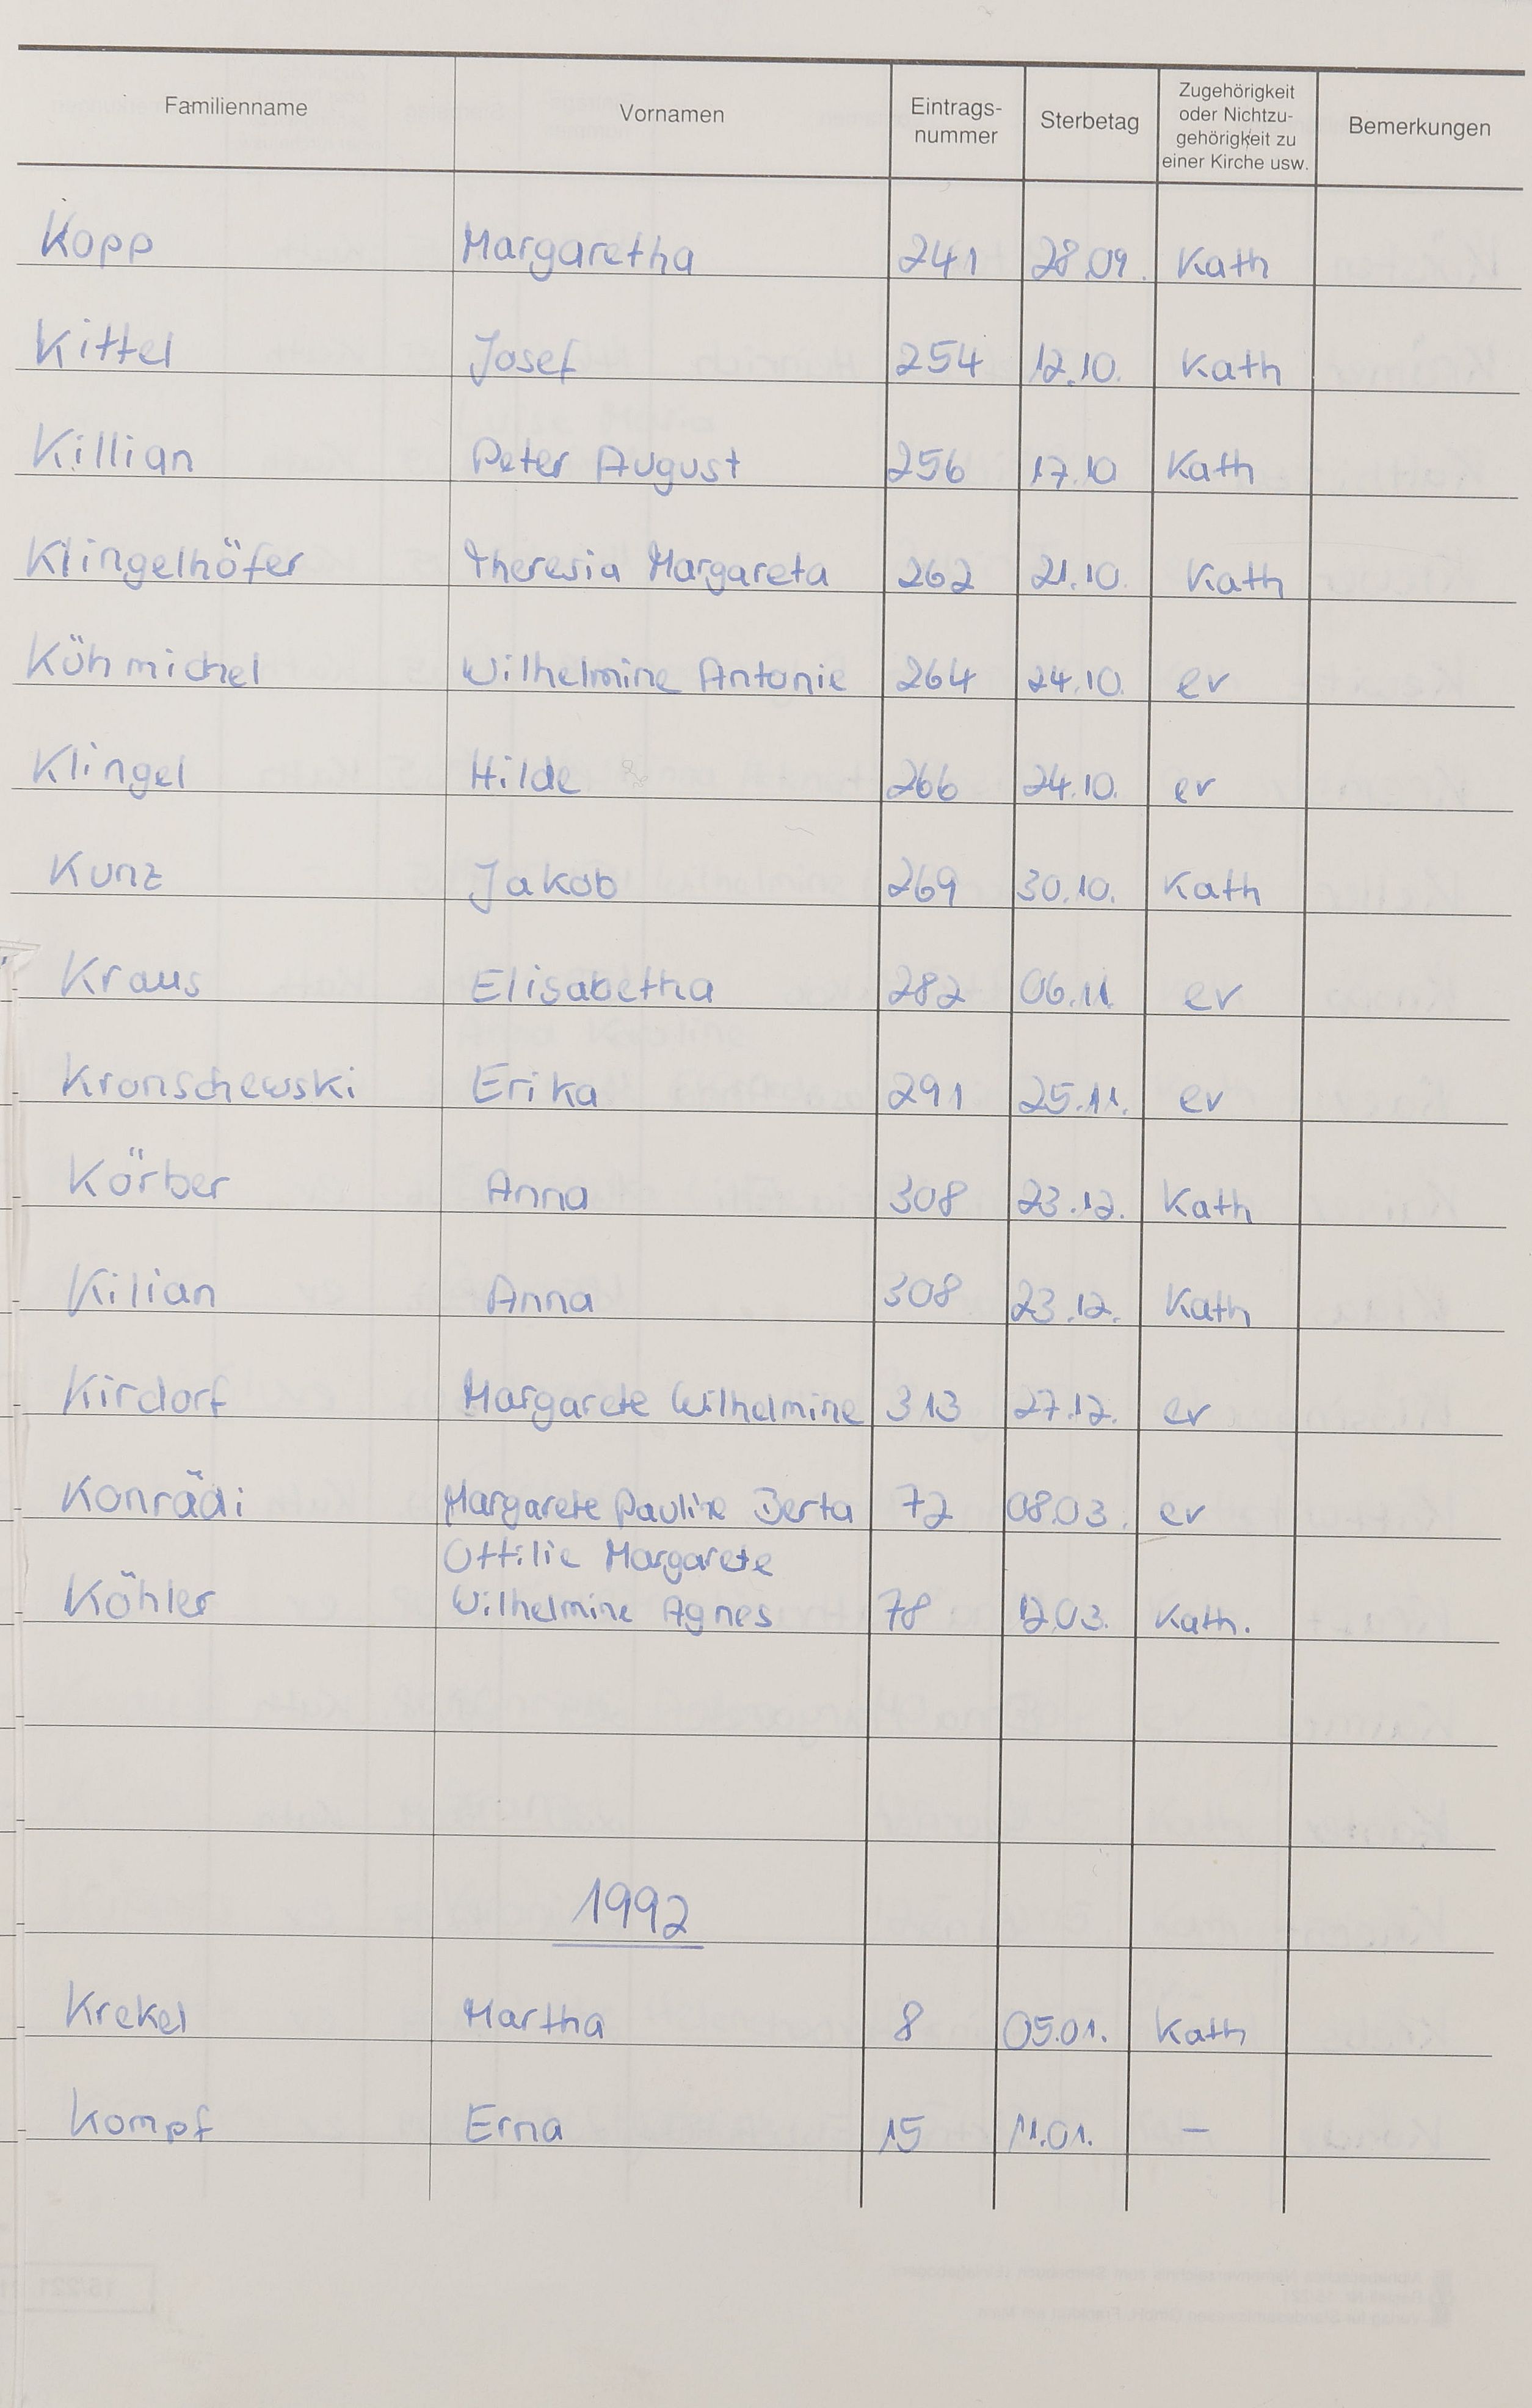 Familienname Vornamen Eintrags-nummer Sterbetag Zugehörigkeit oder Nichtzu-gehörigkeit zu einer Kirche usw. Bemerkungen
Kopp Margaretha 241 28.09. Kath
Kittel Josef 254 12.10. Kath
Killian Peter August 256 17.10 Kath
Klingelhöfer Theresia Margareta 262 21.10. Kath
Köhmichel Wilhelmine Antonie 264 24.10. ev
Klingel Hilde 266 24.10. ev
Kunz Jakob 269 30.10. Kath
Kraus Elisabetha 282 06.11. ev
Kronschewski Erika 291 25.11. ev
Körber Anna 308 23.12. Kath
Kilian Anna 308 23.12. Kath
Kirdorf Margarete Wilhelmine 313 27.12. ev
Konrädi Margarete Pauline Berta 72 08.03. ev
Ottilie Margarete
Köhler Wilhelmine Agnes 78 12.03. Kath.
1992
Krekel Martha 8 05.01. Kath
Kompf Erna 15 11.01. —